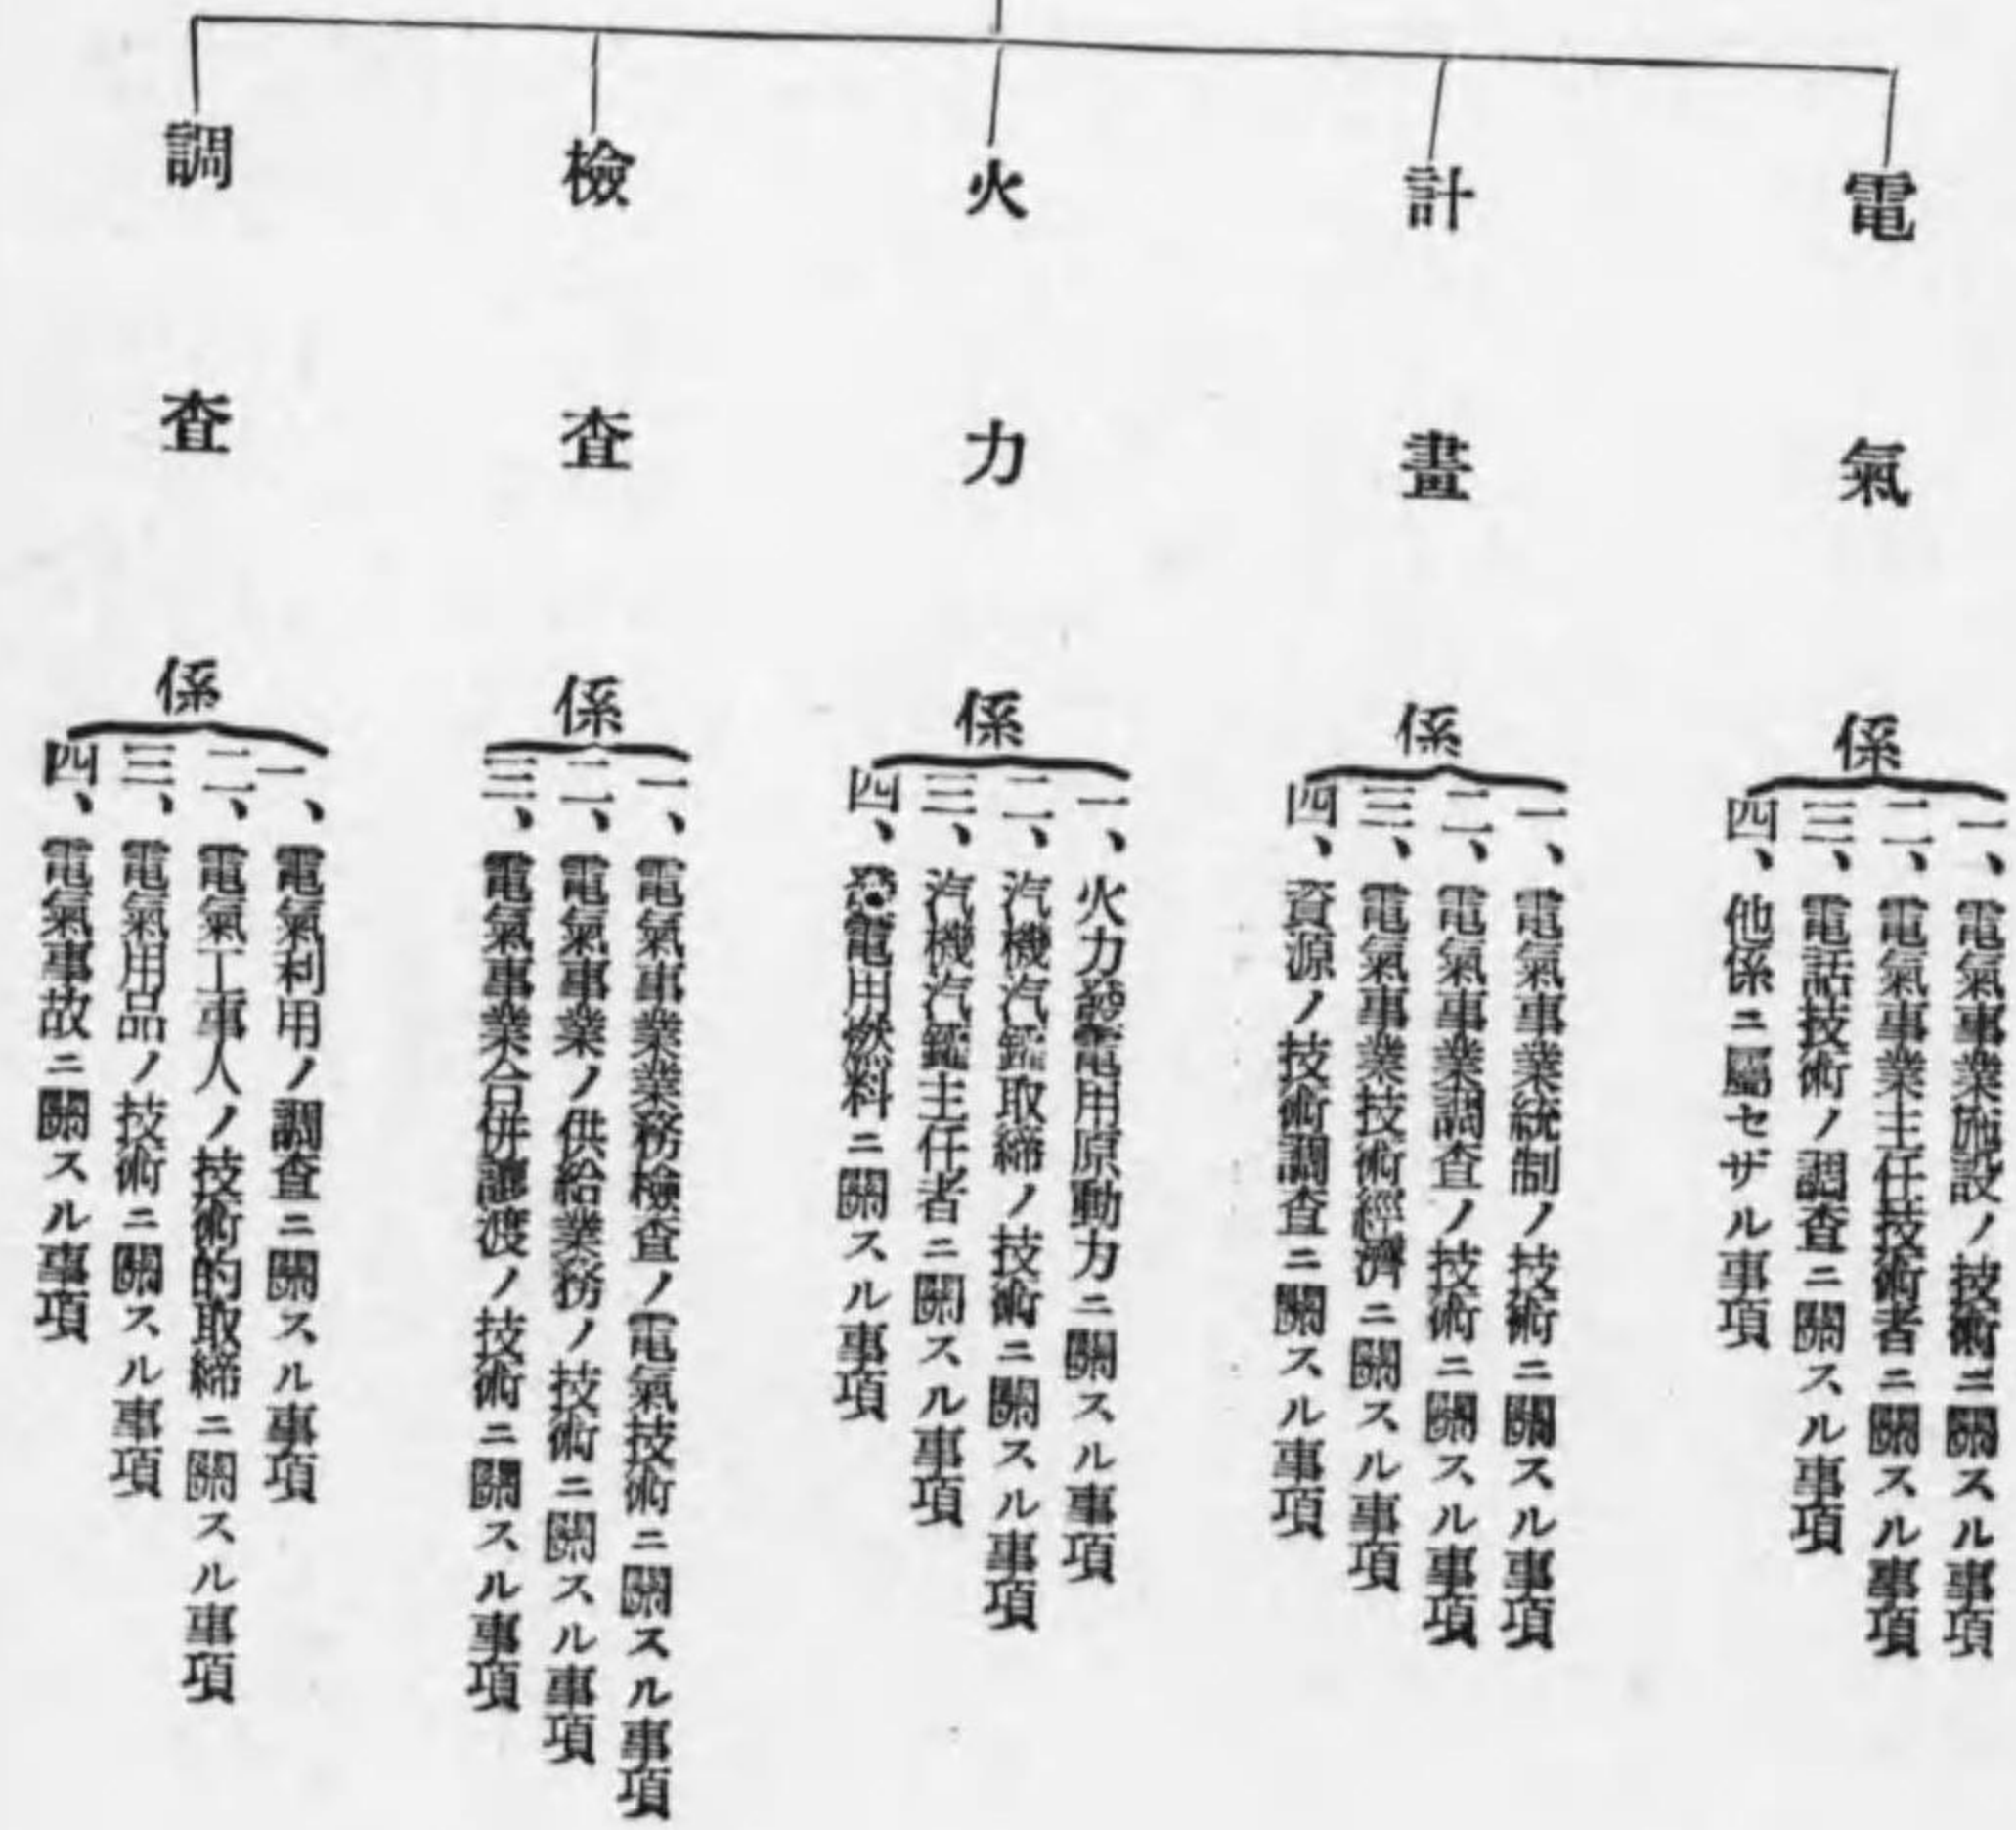 電氣係
一、電氣事業施設ノ技術ニ關スル事項
二、電氣事業主任技術者ニ關スル事項
三、電話技術ノ調査ニ關スル事項
四、他係ニ屬セザル事項
計畫係
一、電氣事業統制ノ技術ニ關スル事項
二、電氣事業調査ノ技術ニ關スル事項
三、電氣事業技術經濟ニ關スル事項
四、資源ノ技術調査ニ關スル事項
火力係
一、火力發電用原動力ニ關スル事項
二、汽機汽鑵取締ノ技術ニ關スル事項
三、汽機汽鑵主任者ニ關スル事項
四、發電用燃料ニ關スル事項
檢査係
一、電氣事業業務檢査ノ電氣技術ニ關スル事項
二、電氣事業ノ供給業務ノ技術ニ關スル事項
三、電氣事業合併讓渡ノ技術ニ關スル事項
調査係
一、電氣利用ノ調査ニ關スル事項
二、電氣工事人ノ技術的取締ニ關スル事項
三、電氣用品ノ技術ニ關スル事項
四、電氣事故ニ關スル事項